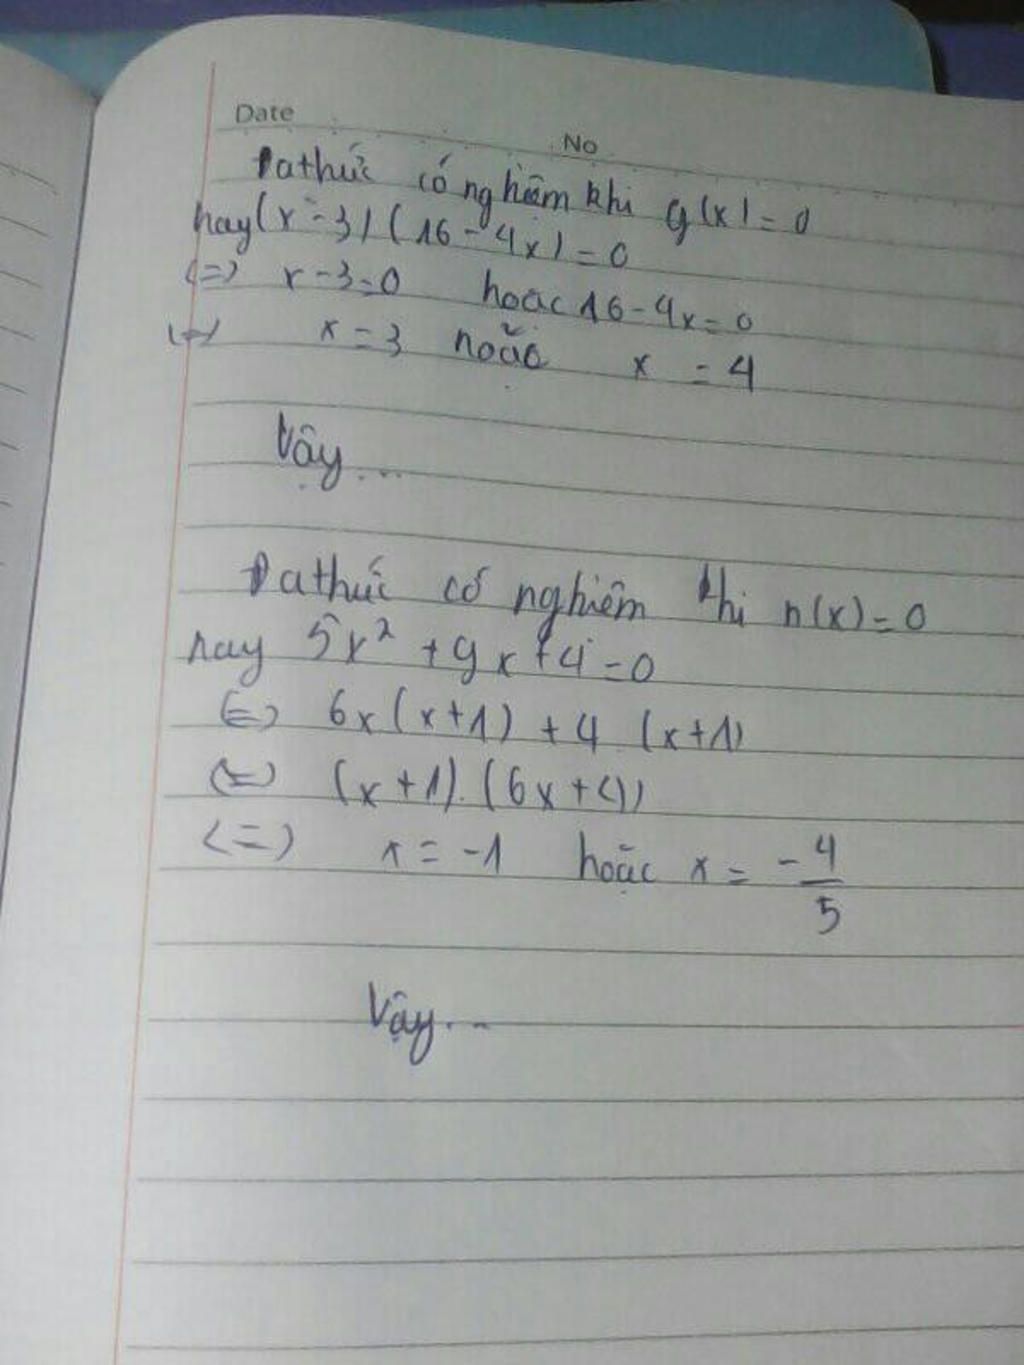 Date
No
Đa thức có nghiệm khi g(x) = 0
hay (x - 3) (16 - 4x) = 0
(=) x - 3 = 0 hoăc 16 - 4x = 0
(=) x = 3 hoặc x = 4
Vậy ...
Đa thức có nghiêm khi n(x) = 0
hay 5x² + 9x + 4 = 0
(=) 6x (x+1) + 4 (x+1)
(=) (x+1). (6x+4)
(=) x = -1 hoặc x = -4/5
Vậy...